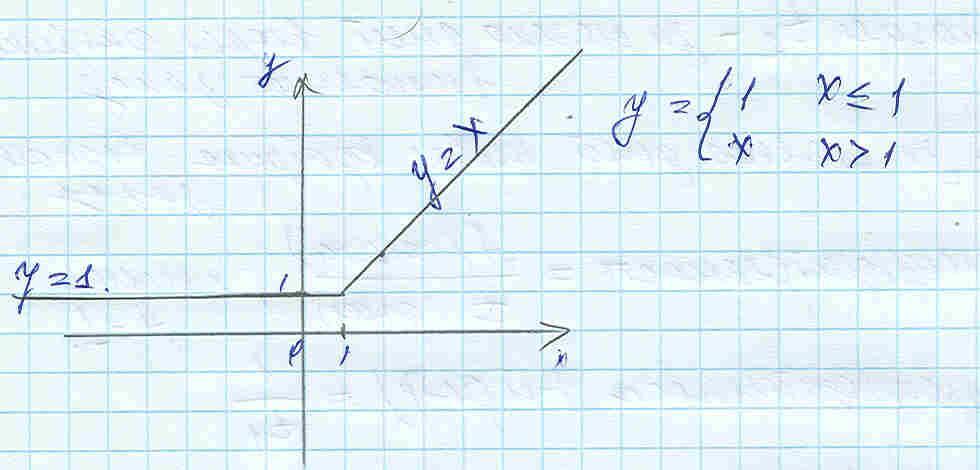 y
y = x
y = { 1 x ≤ 1
x x > 1
y = 1.
1
0 1 x